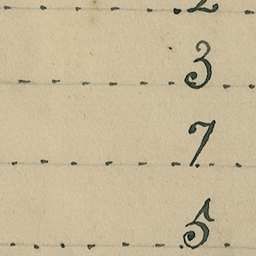 2
3
7
5